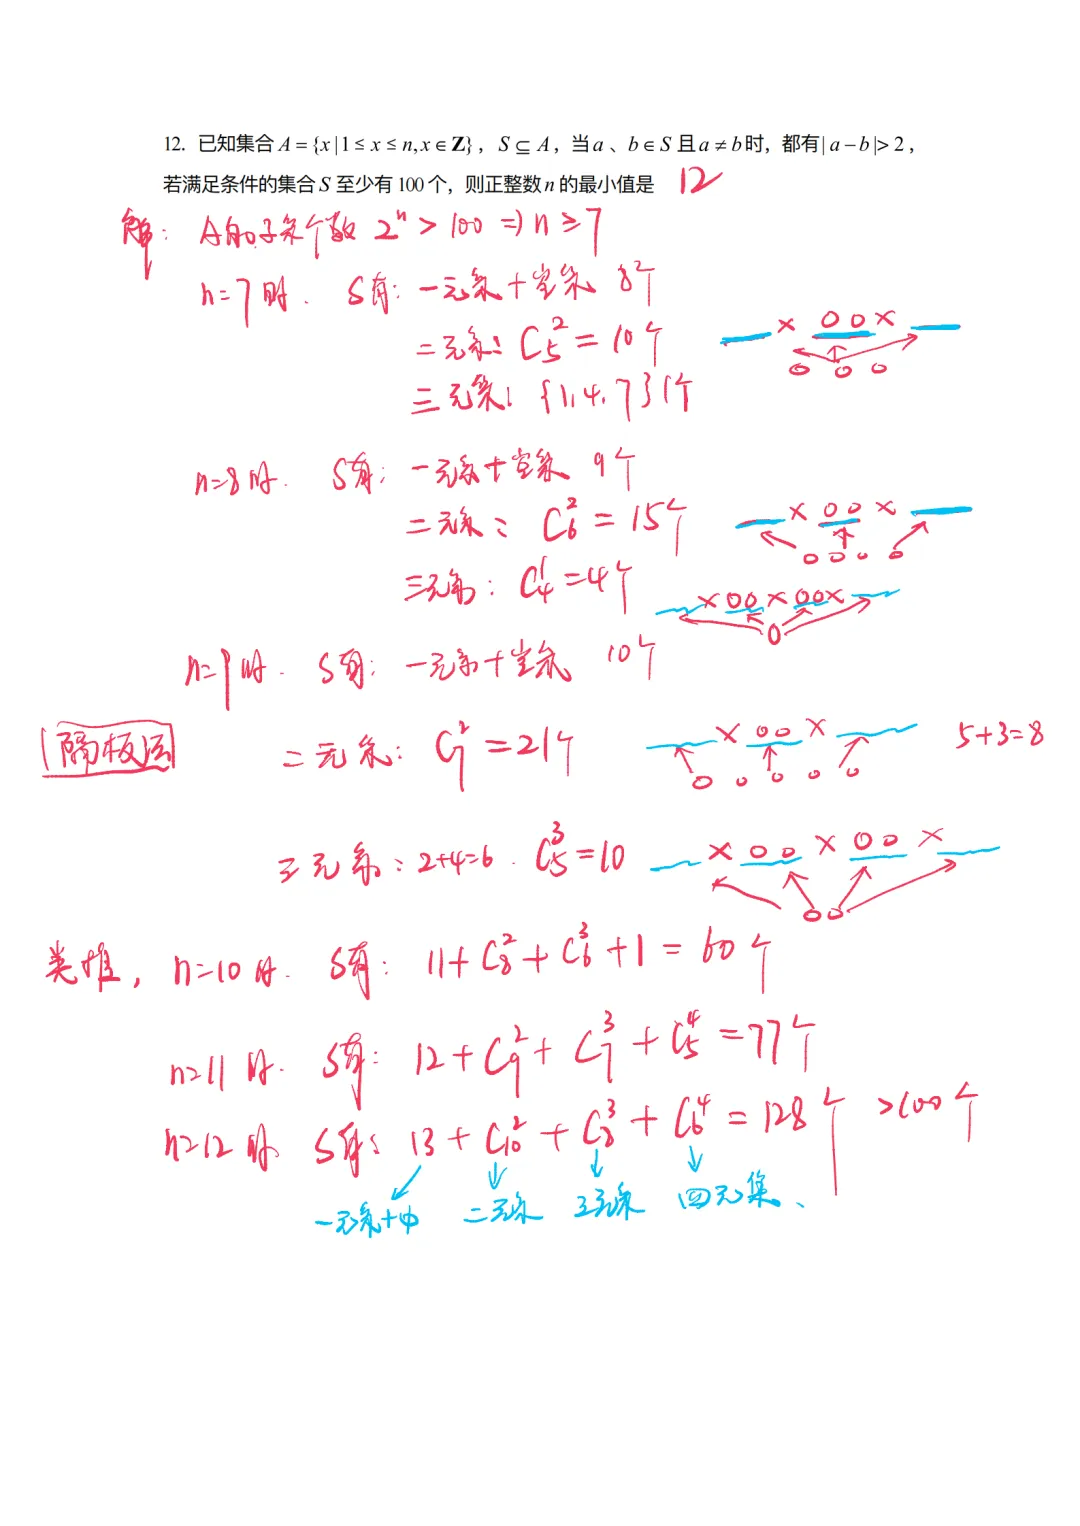 12. 已知集合 A = {x | 1 ≤ x ≤ n, x ∈ Z}，S ⊆ A，当 a 、b ∈ S 且 a ≠ b 时，都有 | a − b |> 2，
若满足条件的集合 S 至少有 100 个，则正整数 n 的最小值是 12
解: A的子集个数 2^n > 100 ⇒ n ≥ 7
n=7时. S有: 一元集+空集 8个
二元集: C_5^2 = 10个
× 0 0 ×
0 0 0
三元集: {1,4,7} 1个
n=8时. S有: 一元集+空集 9个
二元集: C_6^2 = 15个
× 0 0 ×
0 0 0 0
三元集: C_4^1 = 4个
× 0 0 × 0 0 ×
0
n=9时. S有: 一元集+空集 10个
隔板法
二元集: C_7^2 = 21个
× 0 0 ×
0 0 0 0 0
5+3=8
三元集: 2+4=6. C_5^3 = 10
× 0 0 × 0 0 ×
0 0
类推, n=10时. S有: 11 + C_8^2 + C_6^3 + 1 = 60个
n=11时. S有: 12 + C_9^2 + C_7^3 + C_5^4 = 77个
n=12时. S有: 13 + C_10^2 + C_8^3 + C_6^4 = 128个 >100个
一元集+ф 二元集 三元集 四元集、